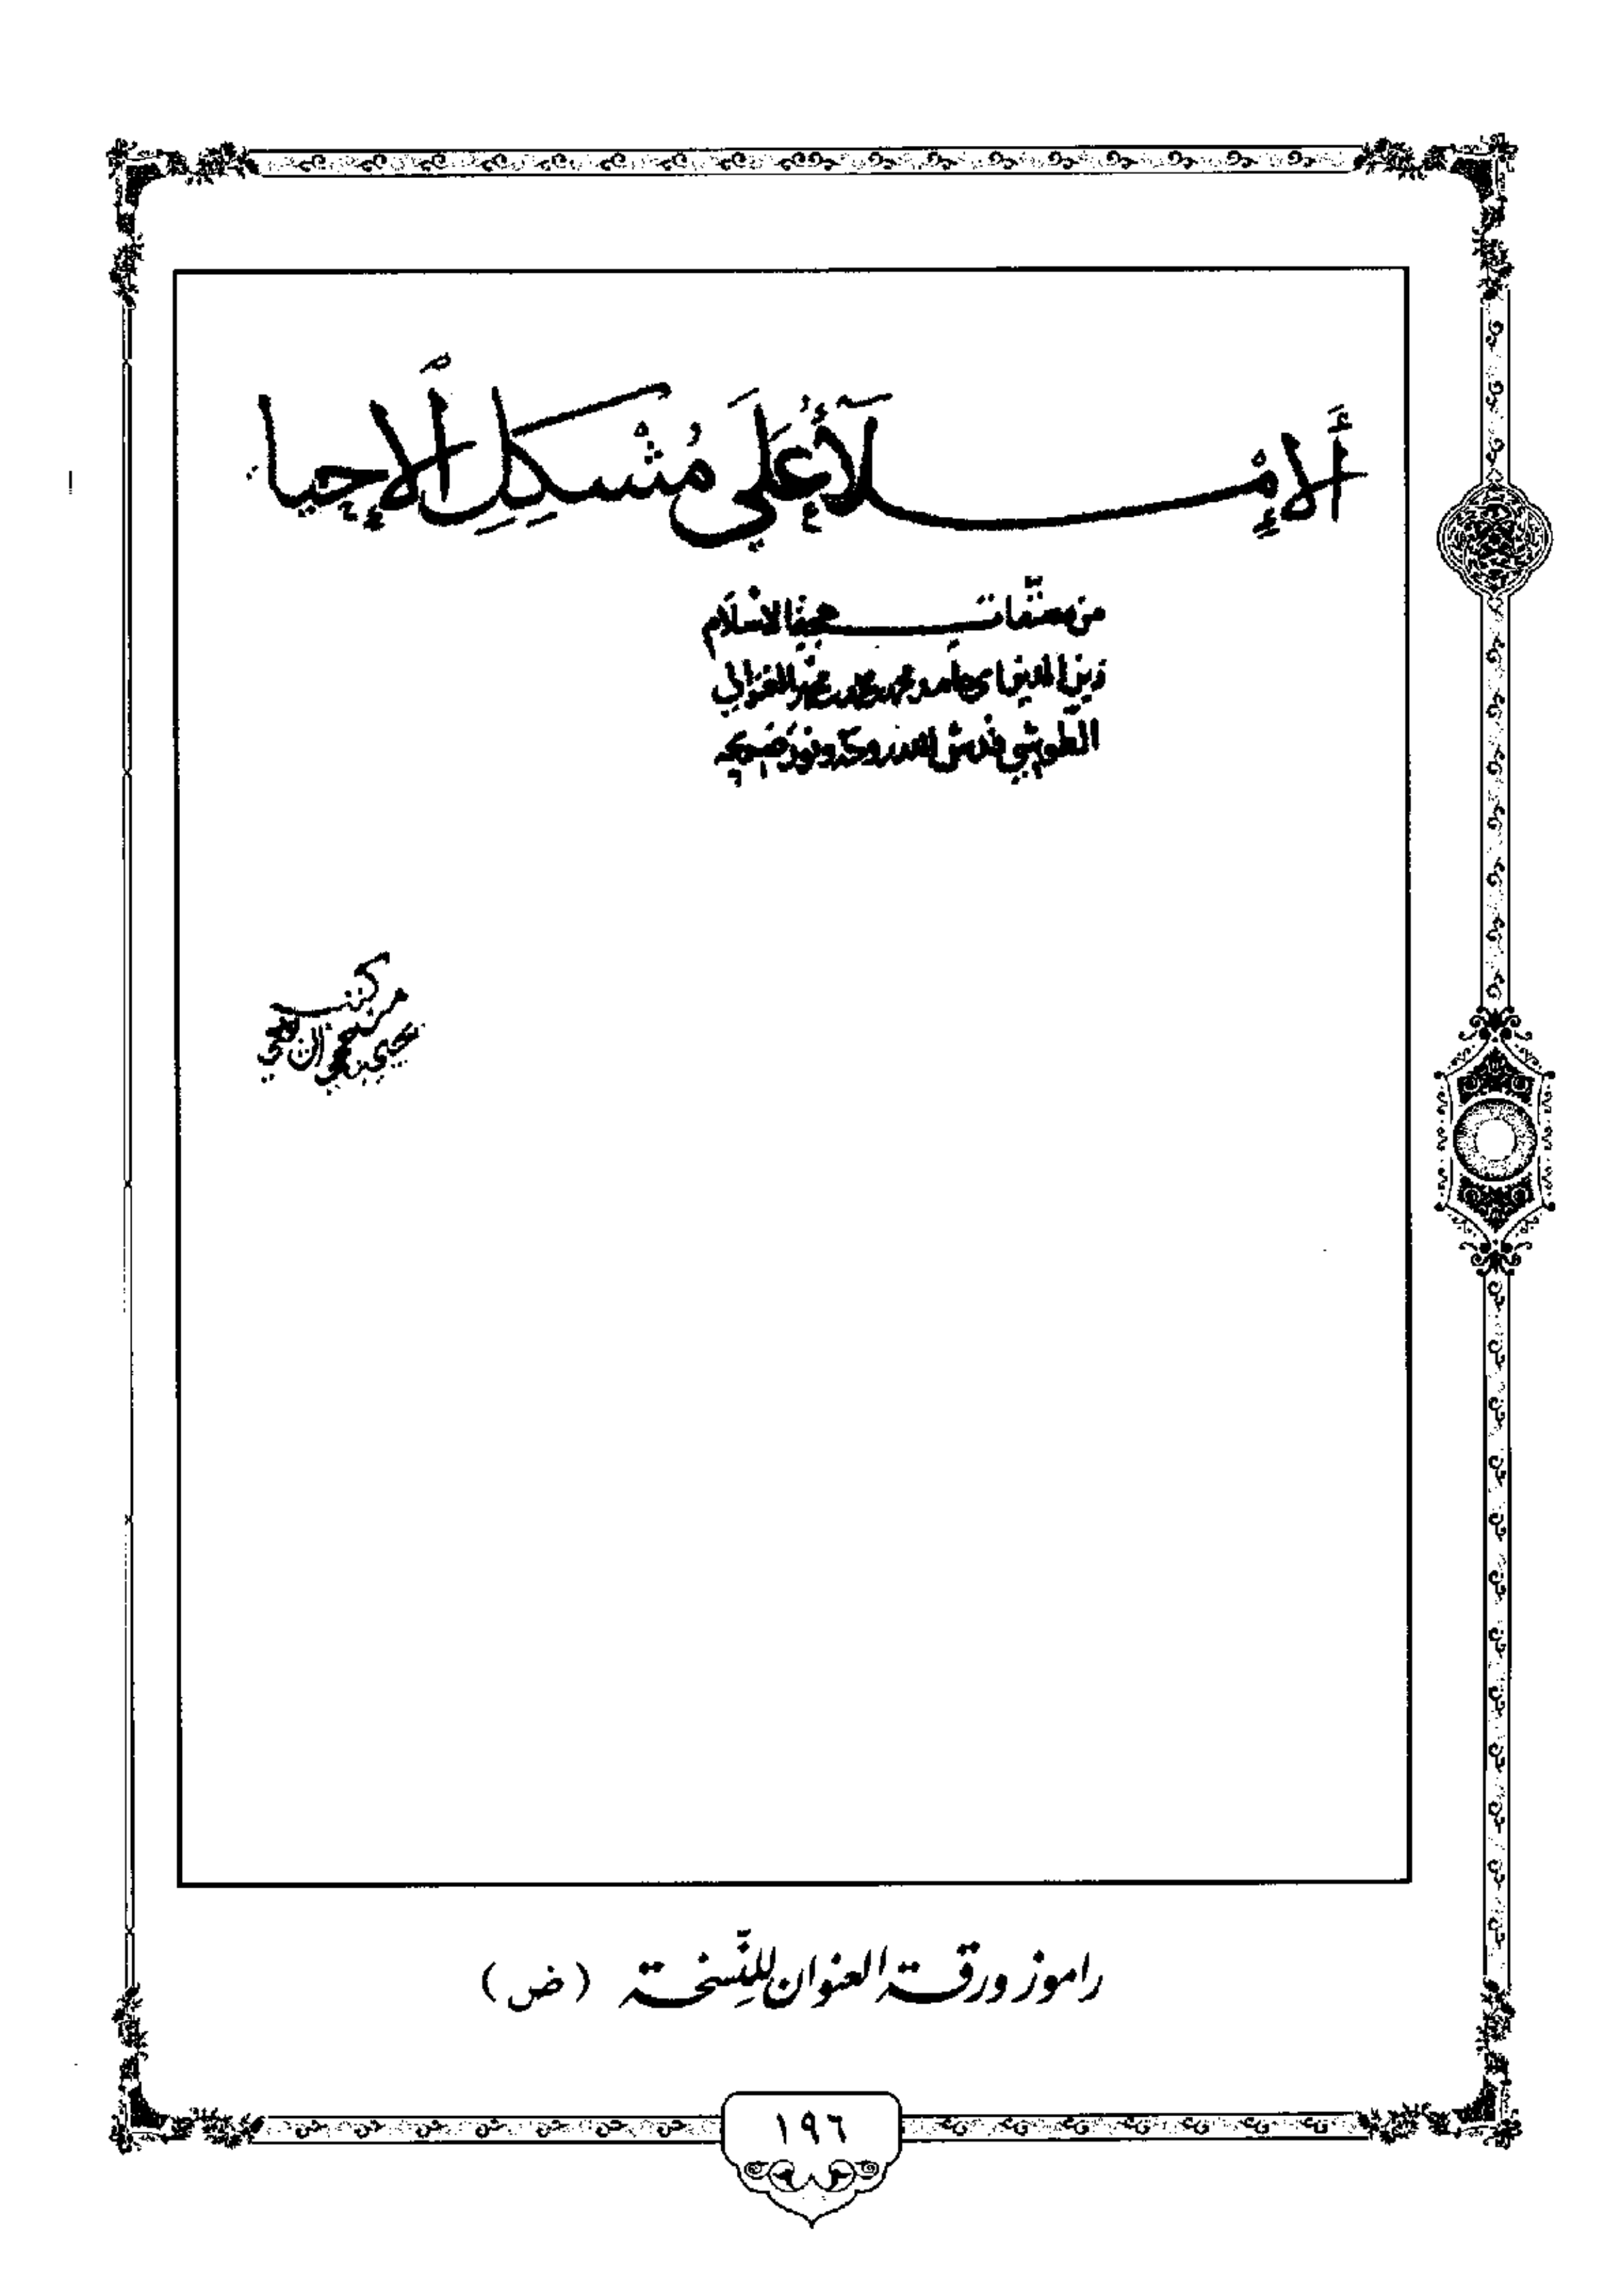 أَلْإِمْلَآءُ عَلَى مُشْكِلِ أَلْإِحيا
من مصنّفات حجة الاسْلَام
زين الدين ابي حامد محمد بن محمد بن محمد الغزالي
الطوسي قدس الله روحه ونور ضريحه
كتب
راموز ورقة العنوان للنِّسخة (ض)
١٩٦